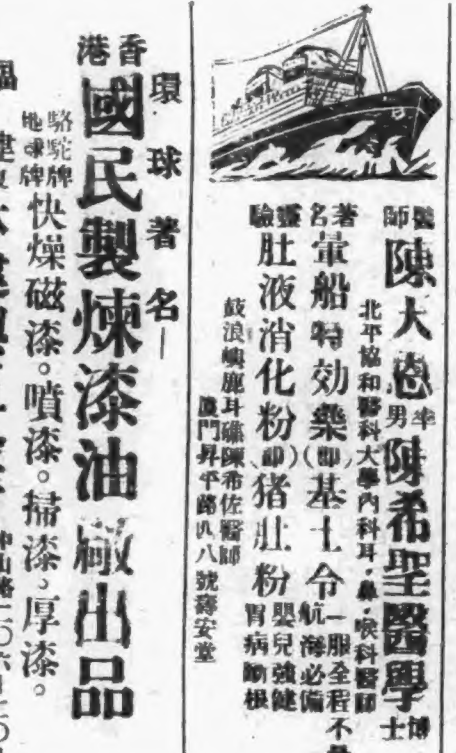 醫師
陳大恩率男陳希聖醫學博士
北平協和醫科大學內科耳.鼻.喉科醫師
著名暈船特効藥(即基士令一服全程不
航海必備
靈驗肚液消化粉(即)猪肚粉嬰兒強健
胃病斷根
鼓浪嶼鹿耳礁陳希佐醫師
廈門昇平路八八號壽安堂
環球著名—
香港國民製煉漆油廠出品
駱駝牌
地球牌快燥磁漆。噴漆。掃漆、厚漆。
福建